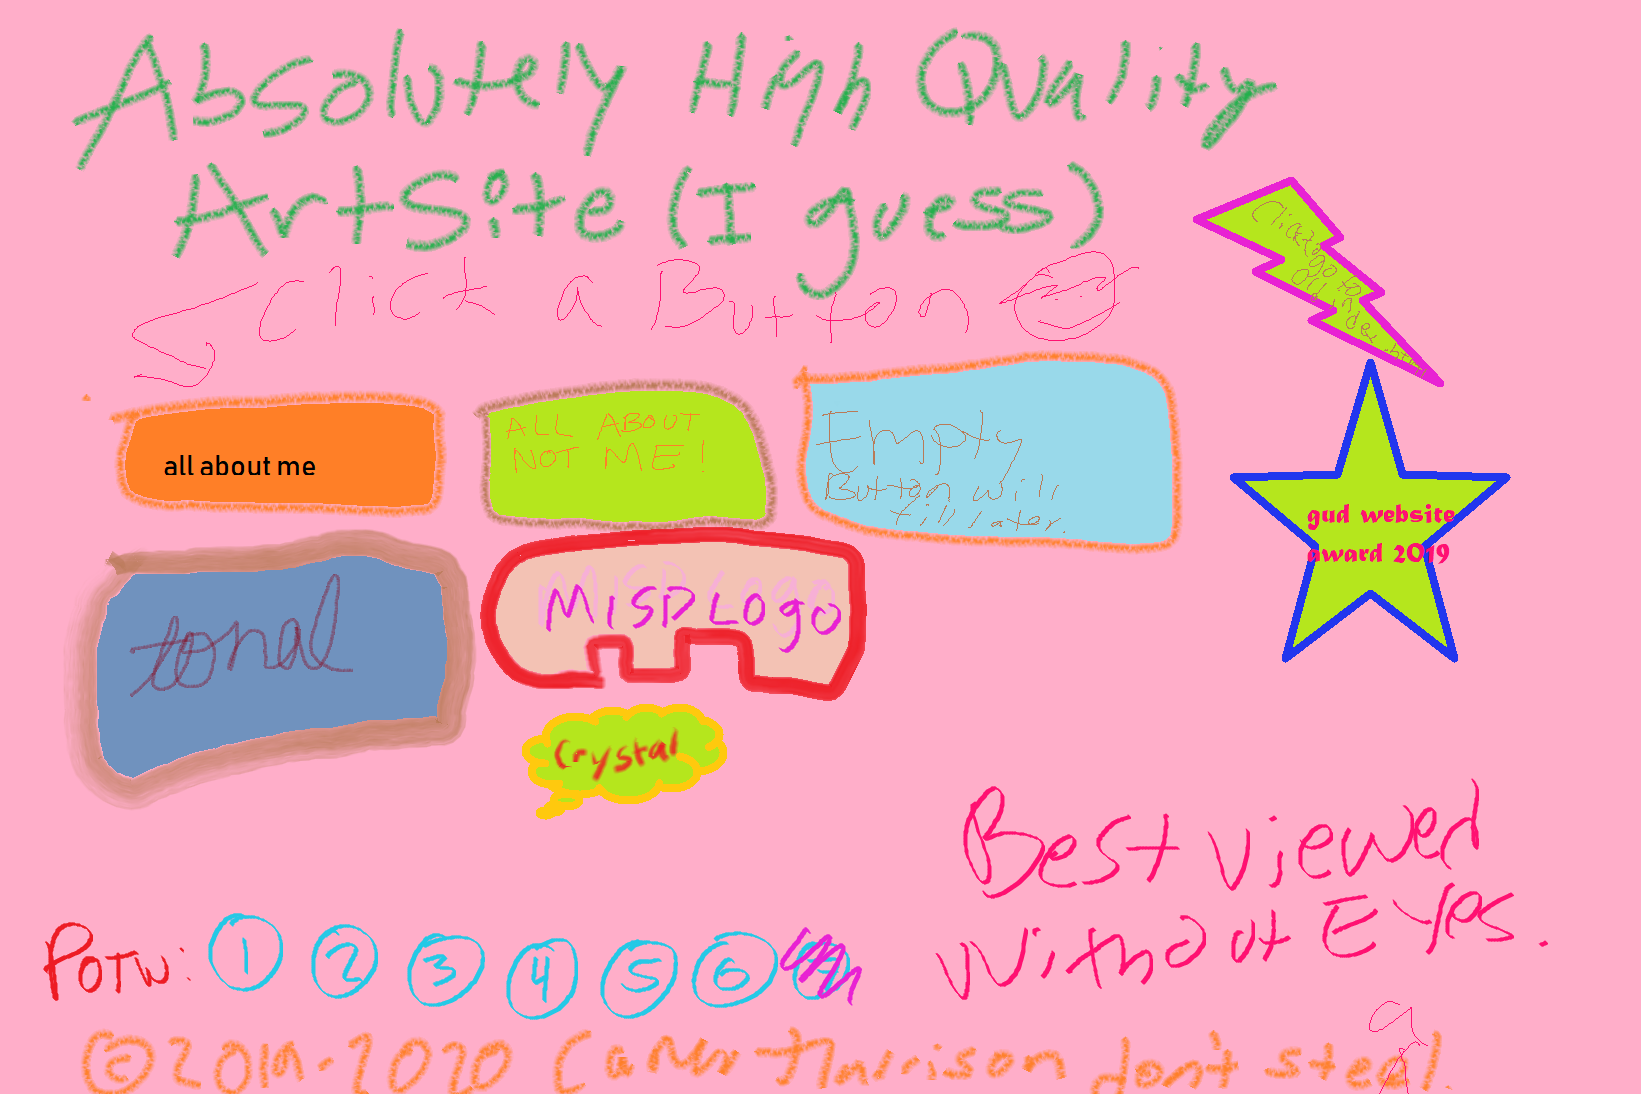 Absolutely High Quality
ArtSite (I guess)
Click a Button
Click to
go to
Old index.html
all about me
ALL ABOUT
NOT ME!
Empty
Button will
fill later.
gud website
award 2019
tonal
MISD LOGO
Crystal
Best viewed
Without Eyes.
POTW: 1 2 3 4 5 6
©2019-2020 Harrison don't steal.